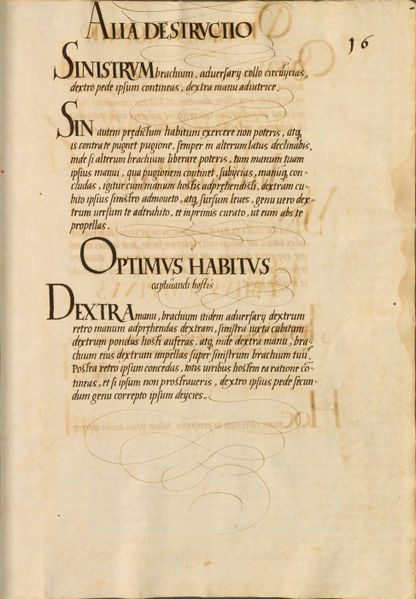 ALIA DESTRVCTIO
16
SINISTRVM brachium, aduersarij collo circũijcias,
dextro pede ipsum contineas, dextra manu adiutrice.
SIN autem prędictum habitum exercere non poteris, atq,
is contra te pugnet pugione, semper in alterum latus declinabis,
inde si alterum brachium liberare poteris, tum manum tuam
ipsius manui, qua pugionem continet, subijcias, manũq, con-
cludas, igitur cum manum hostis adpręhendisti, dextram cu-
bito ipsius sinistro admoueto, atq, sursum leues, genu uero dex-
trum uersum te adtrahito, et inprimis curato, ut eum abs te
propellas.
OPTIMVS HABITVS
captiuandi hostis
DEXTRA manu, brachium itidem aduersarij dextrum
retro manum adprehendas dextram, sinistra iuxta cubitum
dextrum pondus hosti auferas, atq, inde dextra manu, bra-
chium eius dextrum impellas super sinistrum brachium tuũ.
Postea retro ipsum concedas, totis uiribus hostem ea ratione cõ-
tineas, et si ipsum non prostraueris, dextro ipsius pede secun-
dum genu correpto ipsum deijcies.